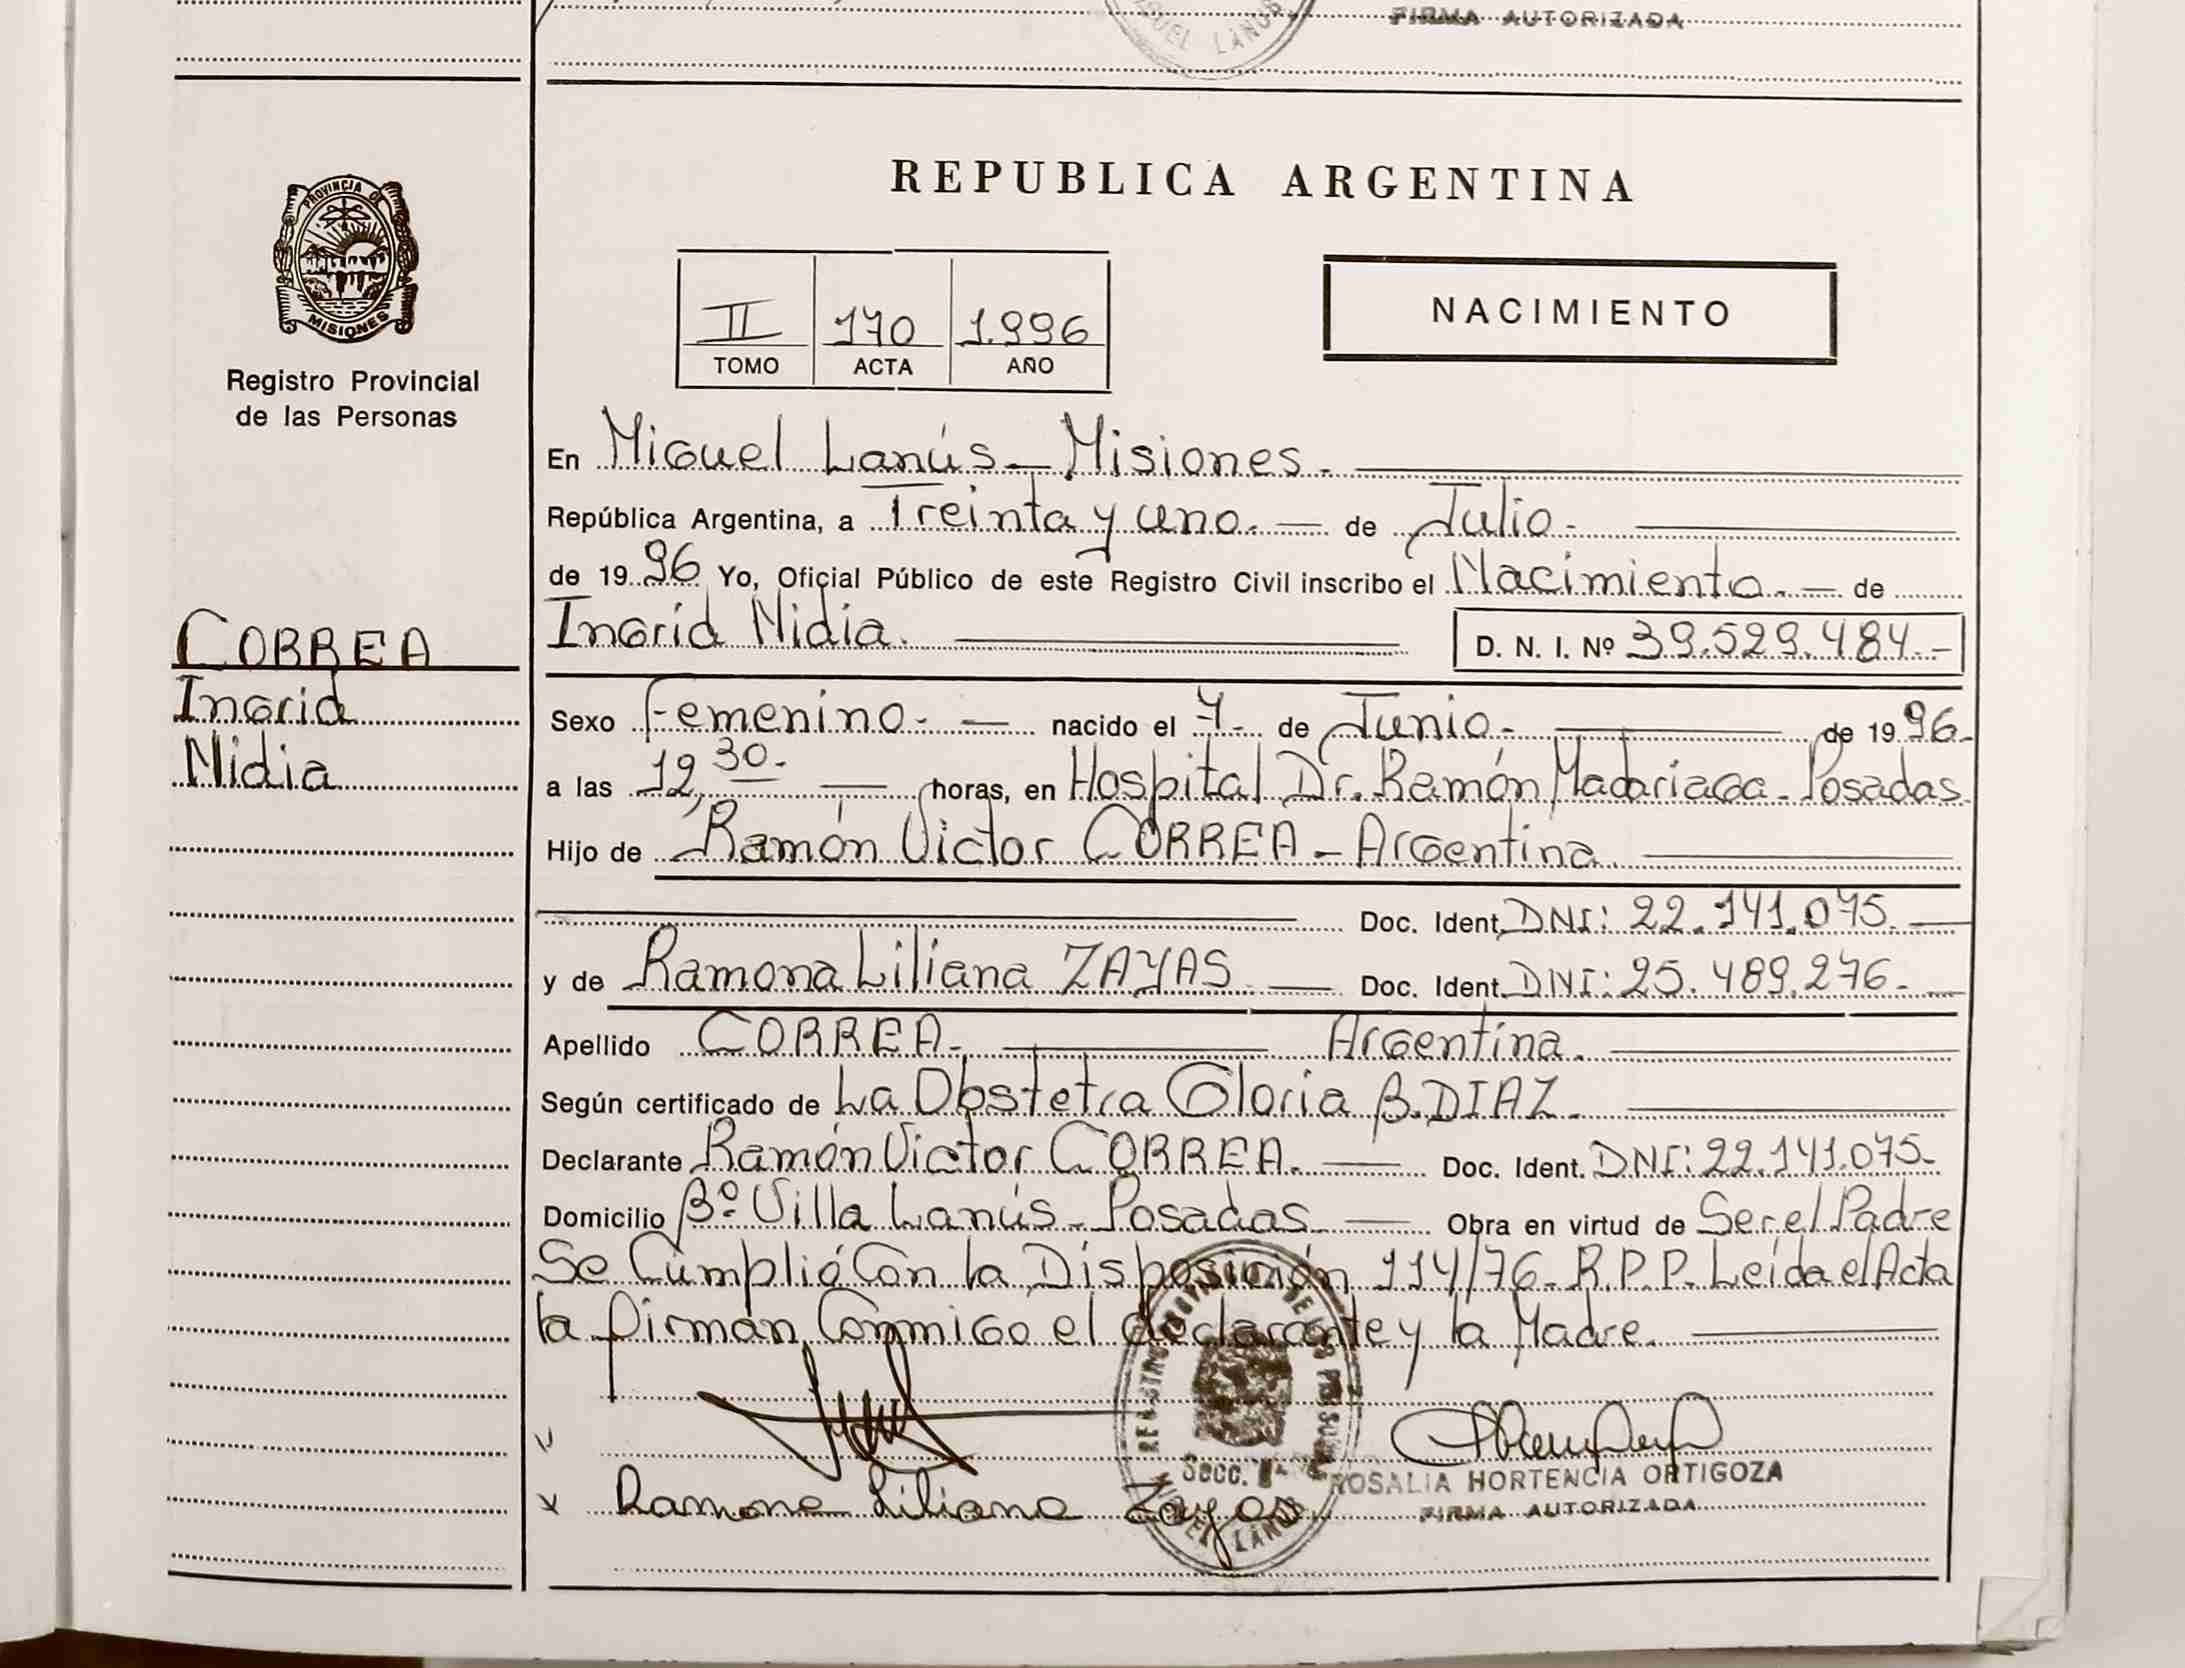 FIRMA AUTORIZADA
REPUBLICA ARGENTINA
PROVINCIA DE
MISIONES
Registro Provincial
de las Personas
II 170 1.996
TOMO ACTA AÑO
NACIMIENTO
En Miguel Lanús - Misiones.
República Argentina, a Treinta y uno. de Julio.
de 1996 Yo, Oficial Público de este Registro Civil inscribo el Nacimiento. de
Ingrid Nidia. D. N. I. Nº 39.529.484.-
CORREA
Ingrid
Nidia
Sexo Femenino. nacido el 7 de Junio. de 1996.
a las 12,30. horas, en Hospital Dr. Ramón Madariaga - Posadas.
Hijo de Ramón Victor CORREA - Argentina.
Doc. Ident. DNI: 22.141.075.
y de Ramona Liliana ZAYAS Doc. Ident. DNI: 25.489.276.
Apellido CORREA. Argentina.
Según certificado de La Obstetra Gloria B. DIAZ.
Declarante Ramón Victor CORREA. Doc. Ident. DNI: 22.141.075.
Domicilio Bº. Villa Lanús - Posadas Obra en virtud de Ser el Padre
Se Cumplió Con la Disposición 114/76 - R.P.P. Leída el Acta
la firman Conmigo el declarante y la Madre.
Secc.
ROSALIA HORTENCIA ORTIGOZA
Ramona Liliana Zayas
FIRMA AUTORIZADA